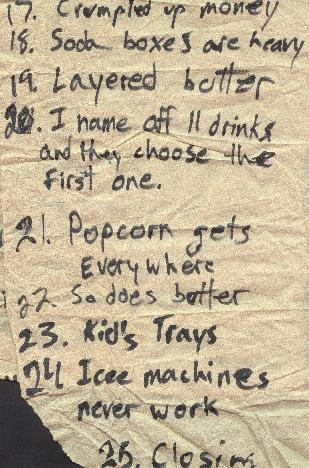 17. Crumpled up money
18. Soda boxes are heavy
19. Layered butter
20. I name off 11 drinks
and they choose the
first one.
21. Popcorn gets
Everywhere
22. So does butter
23. Kid's Trays
24 Icee machines
never work
25. Closin